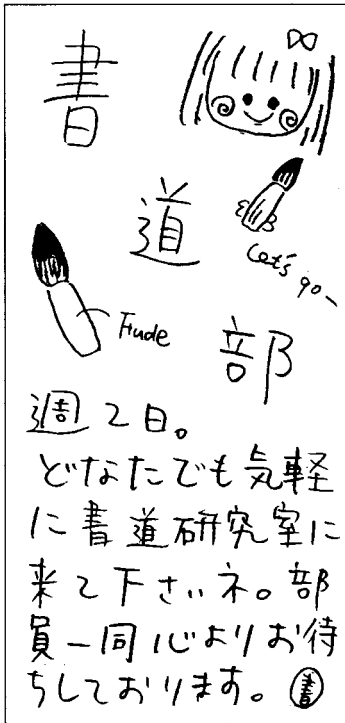 書
道
Let's go〜
Fude
部
週2日。
どなたでも気軽
に書道研究室に
来て下さいネ。部
員一同心よりお待
ちしております。書